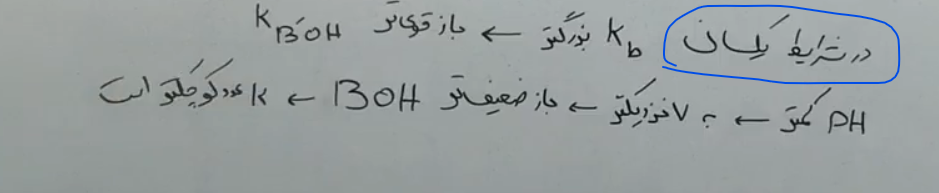 در شرایط یکسان K_b بزرگتر ← باز قوی‌تر K_B'OH
PH کمتر ← به ۷ نزدیکتر ← باز ضعیف‌تر BOH ← K عدد کوچکتر است